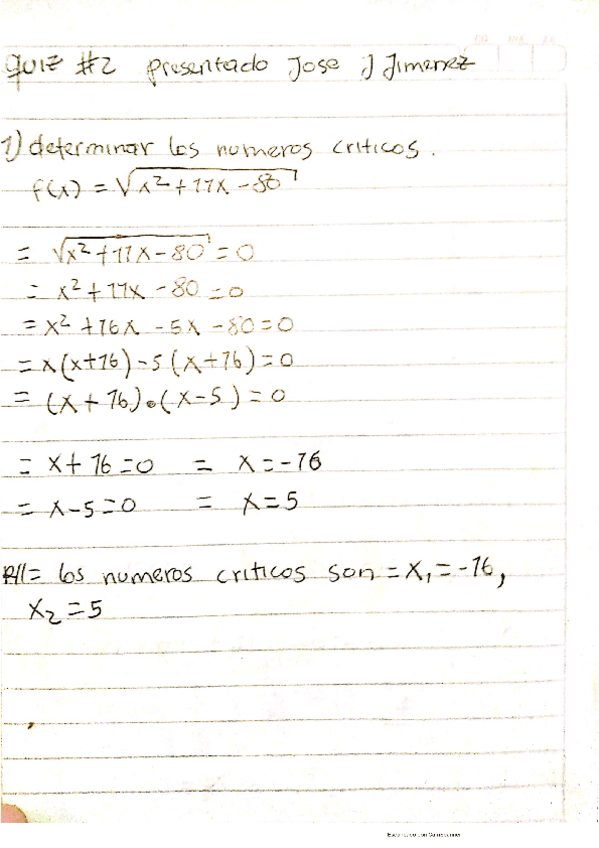 QUIZ #2 presentado Jose J Jimenez
1) determinar los numeros criticos.
f(x) = √x² + 11x - 80
= √x² + 11x - 80 = 0
= x² + 11x - 80 = 0
= x² + 16x - 5x - 80 = 0
= x(x+16) - 5(x+16) = 0
= (x+16)•(x-5) = 0
= x + 16 = 0 = x = -16
= x - 5 = 0 = x = 5
R//= los numeros criticos son = x₁ = -16,
x₂ = 5
Escaneado con CamScanner